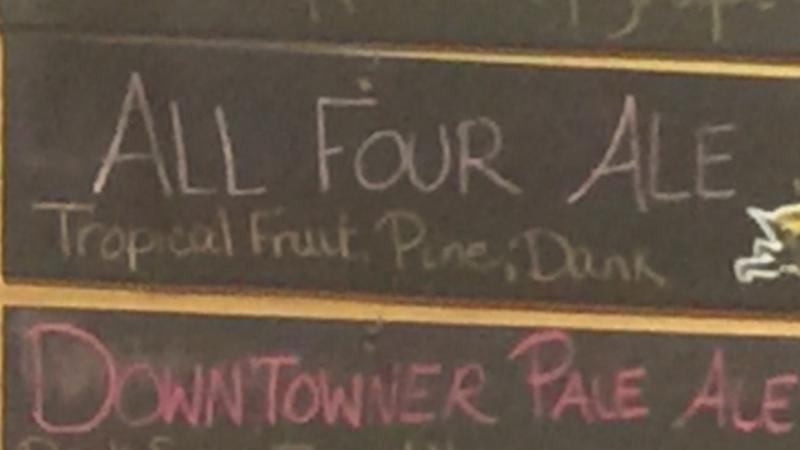 ALL FOUR ALE
Tropical Fruit, Pine, Dank
DOWNTOWNER PALE ALE